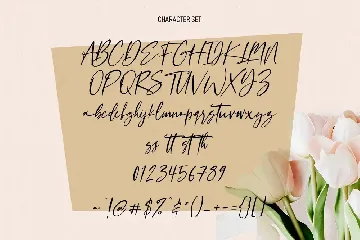 CHARACTER SET
ABCDEFGHIJKLMN
OPQRSTUVWXYZ
abcdefghijklmnopqrstuvwxyz
ss tt st th
0123456789
~`!@#$%^&*()_+-={}[]